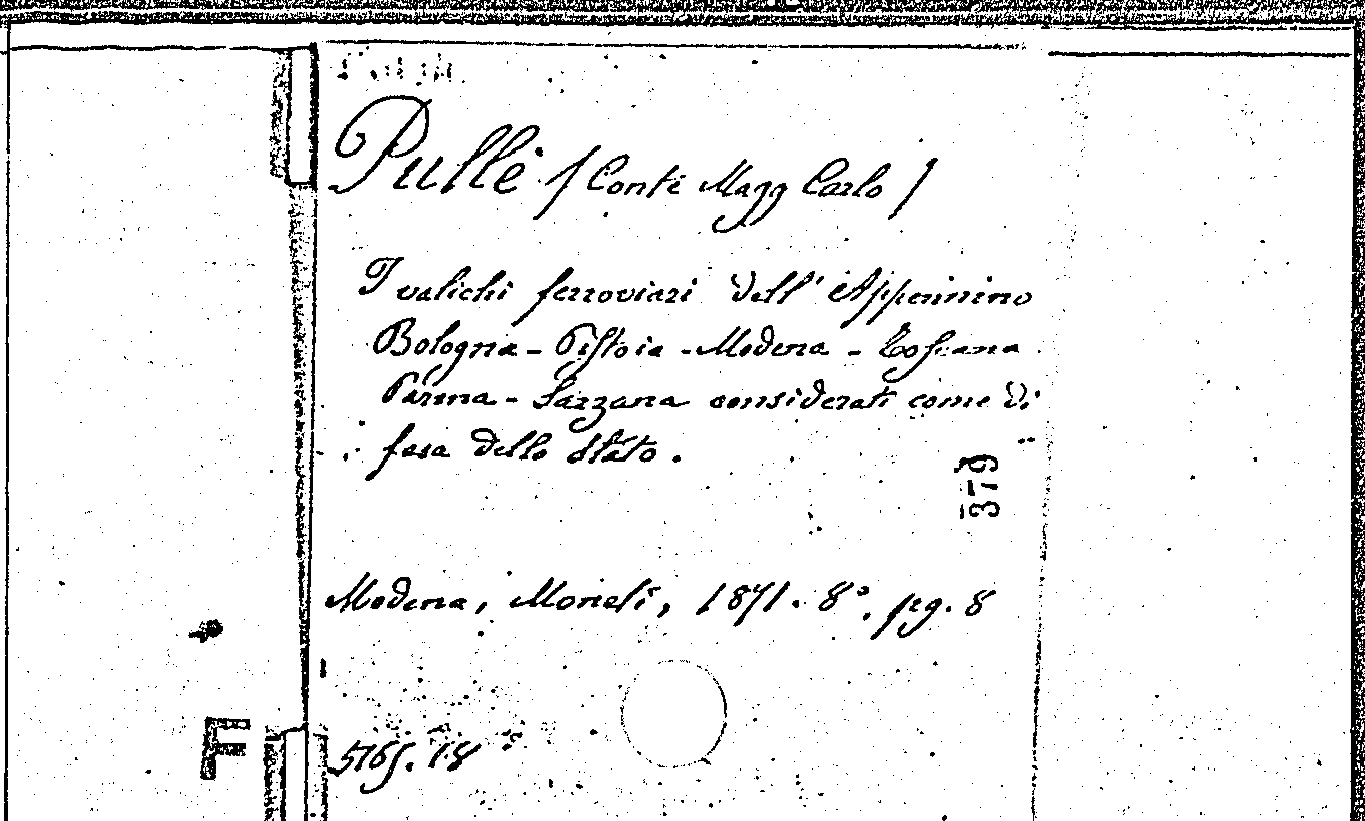 Pullè (Conte Magg Carlo)
I valichi ferroviari dell' Appennino
Bologna - Pistoia - Modena - Toscana
Parma - Sarzana considerati come di
fesa dello Stato.
379
Modena, Moneti, 1871. 8°. pg. 8
F
5765.18